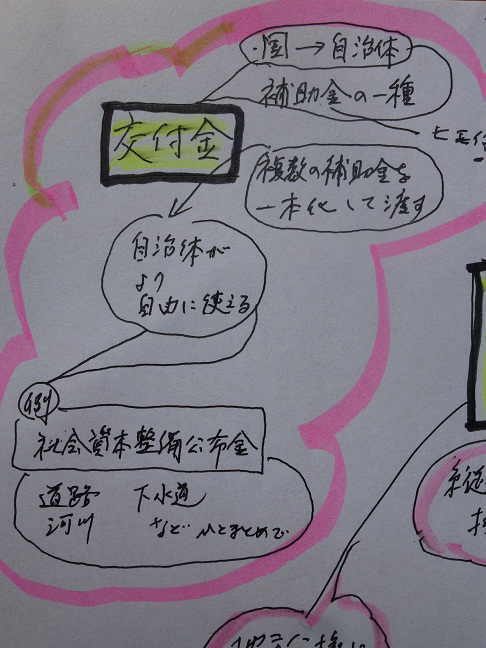 国→自治体
補助金の一種
交付金
複数の補助金を
一本化して渡す
自治体が
より
自由に使える
例
社会資本整備公布金
道路 下水道
河川 など ひとまとめで